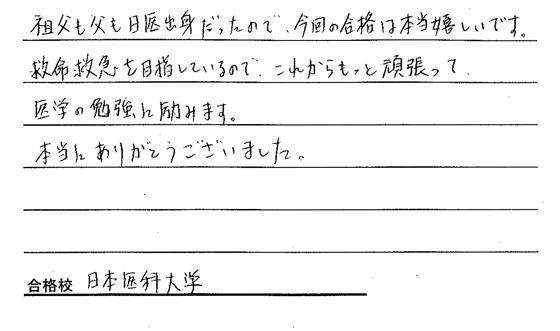 祖父も父も日医出身だったので、今回の合格は本当嬉しいです。
救命救急を目指しているので、これからもっと頑張って、
医学の勉強に励みます。
本当にありがとうございました。
合格校 日本医科大学